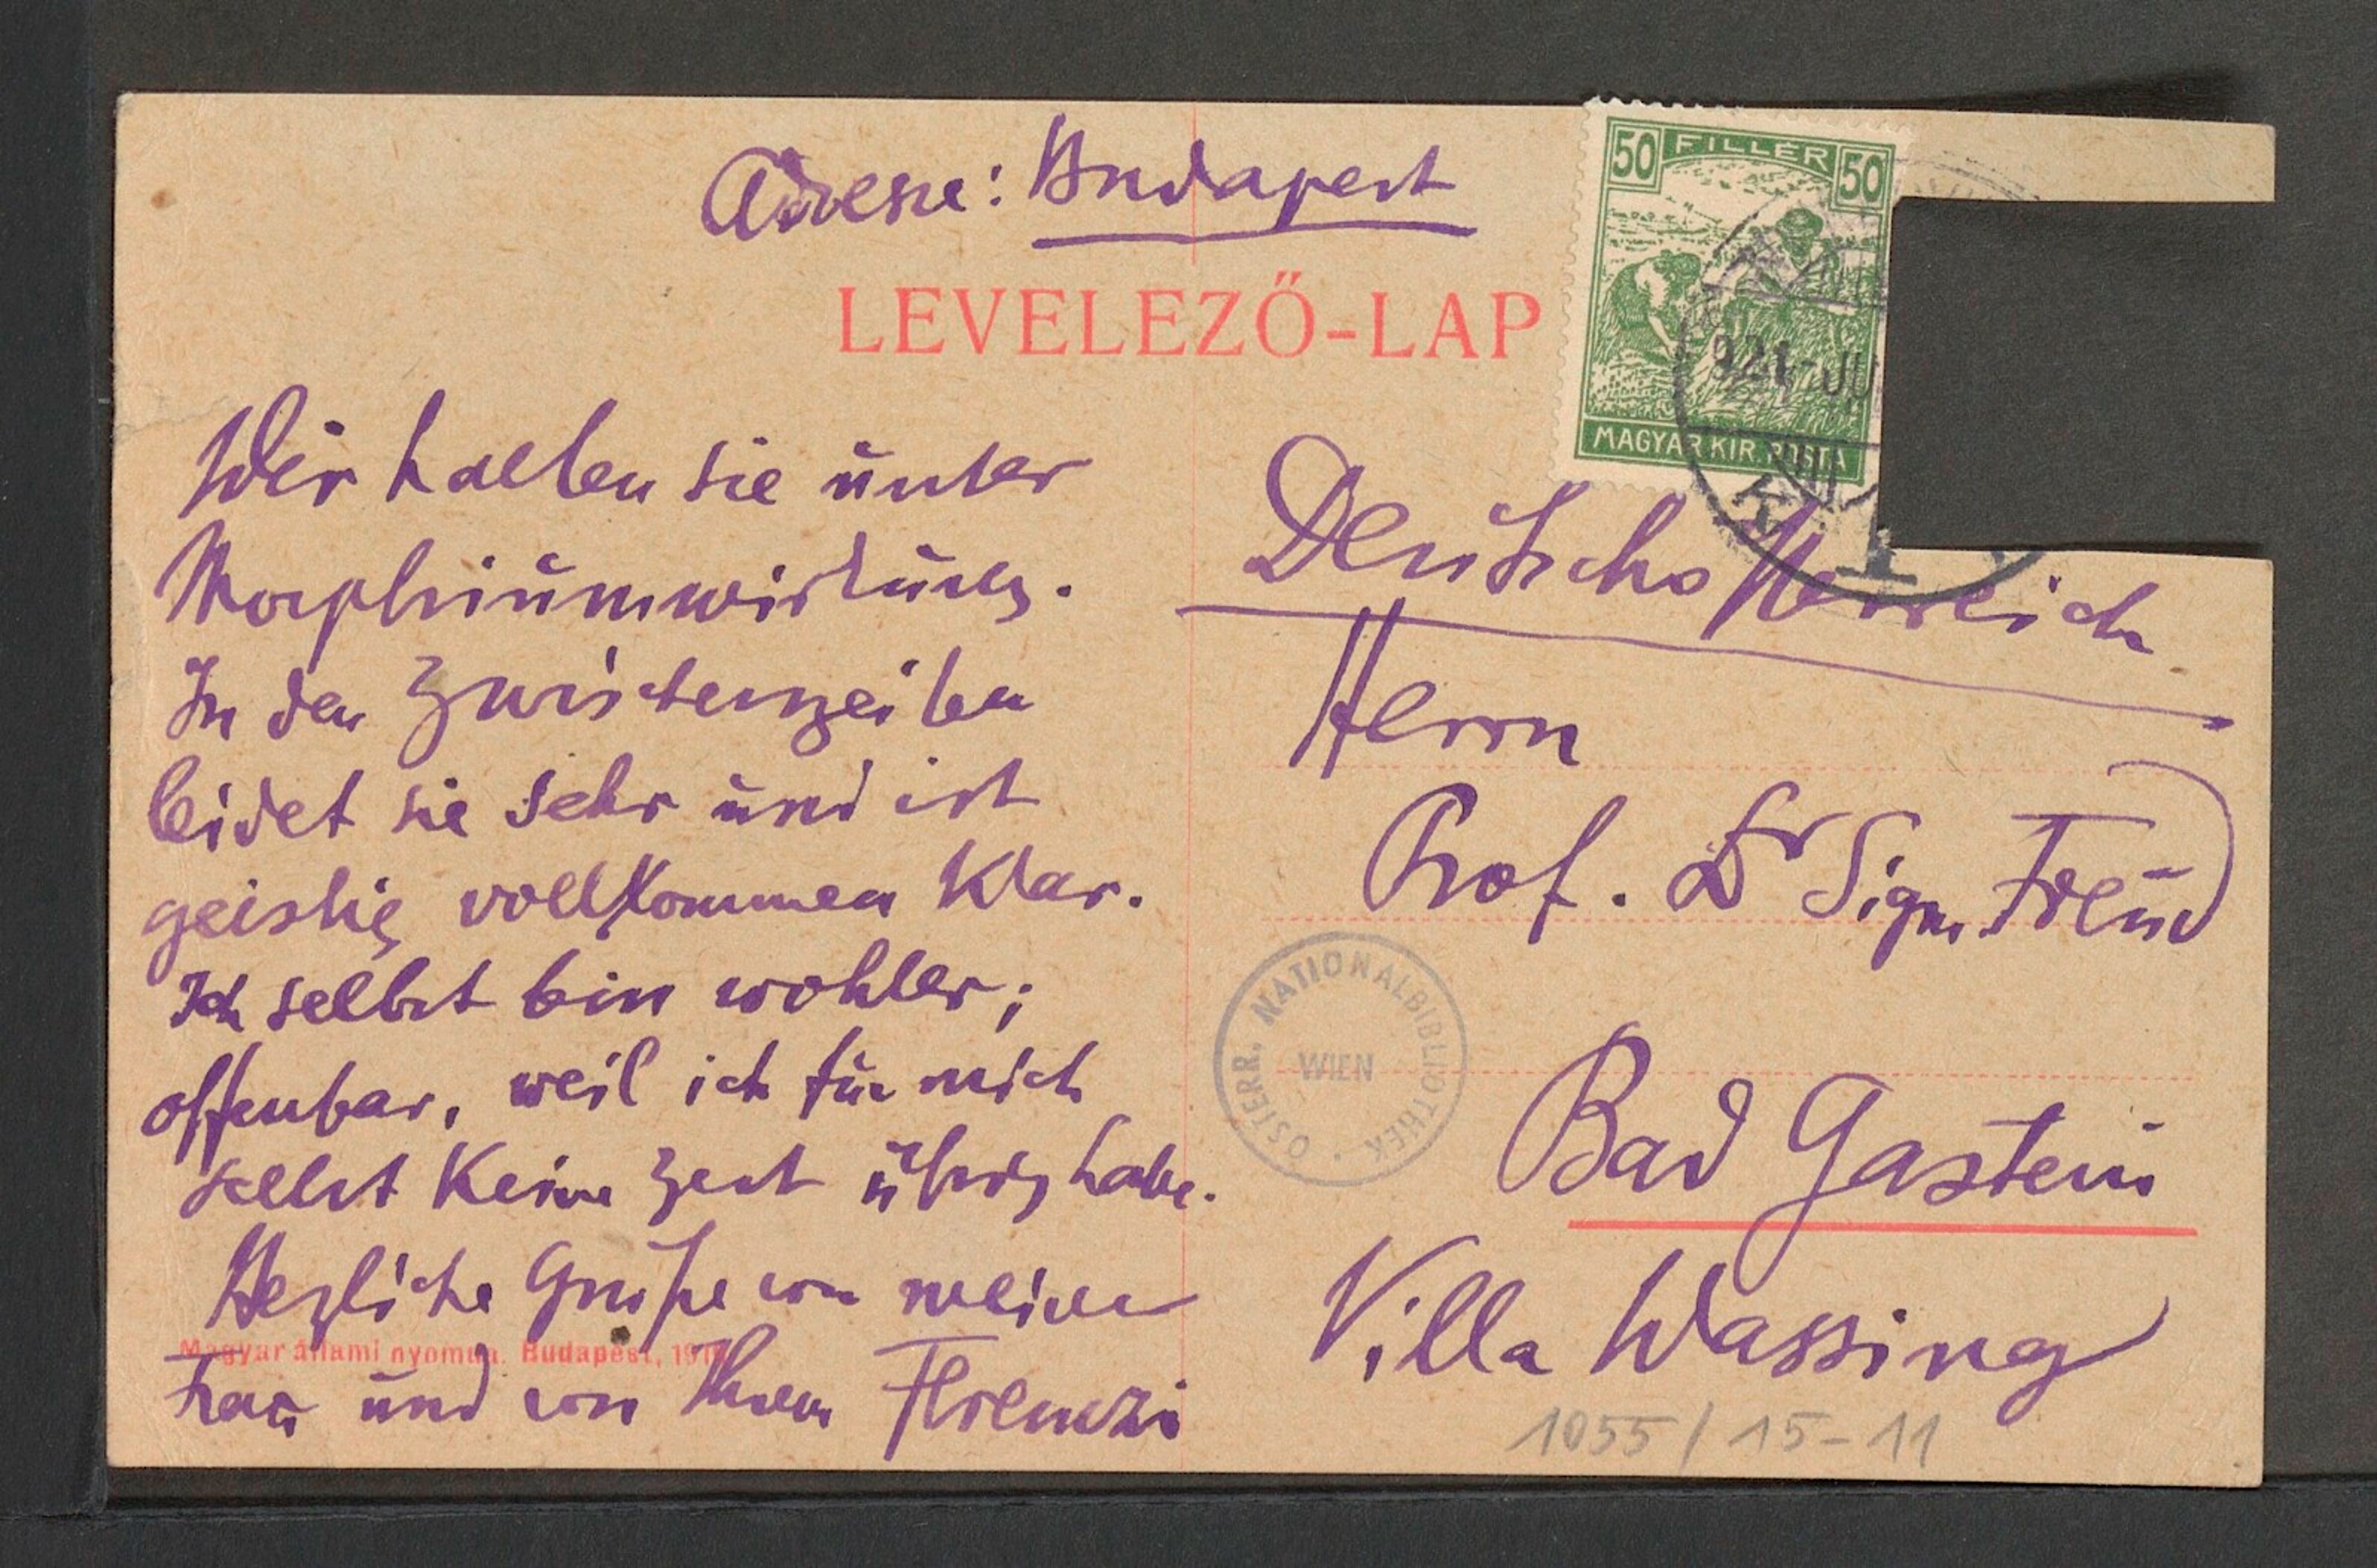 Adresse: Budapest
50 FILLÉR 50
LEVELEZŐ-LAP
921 JU
MAGYAR KIR. POSTA
Wir halten sie unter
Morphiumwirkung.
In den Zwischenzeiten
leidet sie sehr und ist
geistig vollkommen klar.
Ich selbst bin wohler;
offenbar, weil ich für mich
selbst keine Zeit übrig habe.
Herzliche Grüße von meiner
Magyar állami nyomda. Budapest, 191
Frau und von Ihrem Ferenczi
Deutschösterreich
Herrn
Prof. Dr Sigm. Freud
ÖSTERR. NATIONALBIBLIOTHEK
WIEN
Bad Gastein
Villa Wassing
1055/15-11